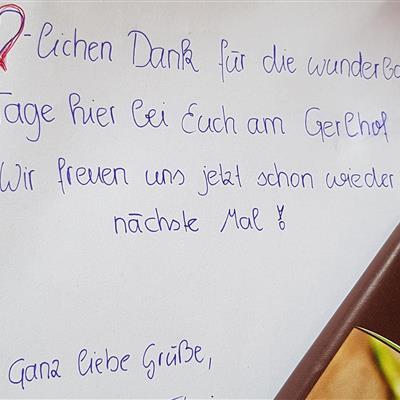 -lichen Dank für die wunderba
Tage hier bei Euch am Gerlhof
Wir freuen uns jetzt schon wieder
nächste Mal!
Ganz liebe Grüße,